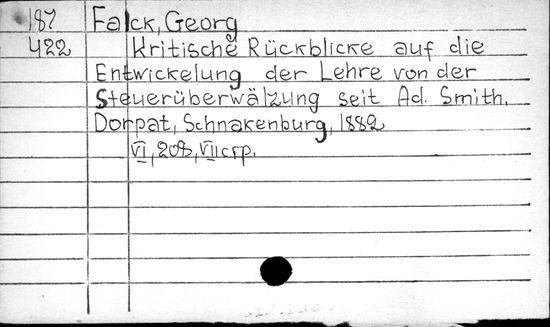 187 Falck, Georg
422 Kritische Rückblicke auf die
Entwickelung der Lehre von der
Steuerüberwälzung seit Ad. Smith.
Dorpat, Schnakenburg, 1882
VI, 208, VII стр.